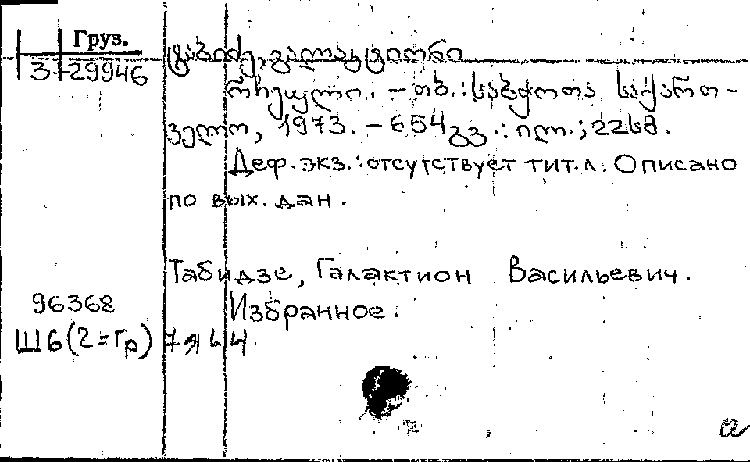 Груз.
3-29946
ტაბიძე, გალაკტიონი
რჩეული. – თბ.: საბჭოთა საქართ-
ველო, 1973. – 654გვ.: ილ.; 22სმ.
Деф. экз.: отсутствует тит.л. Описано
по вых. дан.
Табидзе, Галактион Васильевич.
Избранное.
96368
Ш6(2=Гр)7я44
a